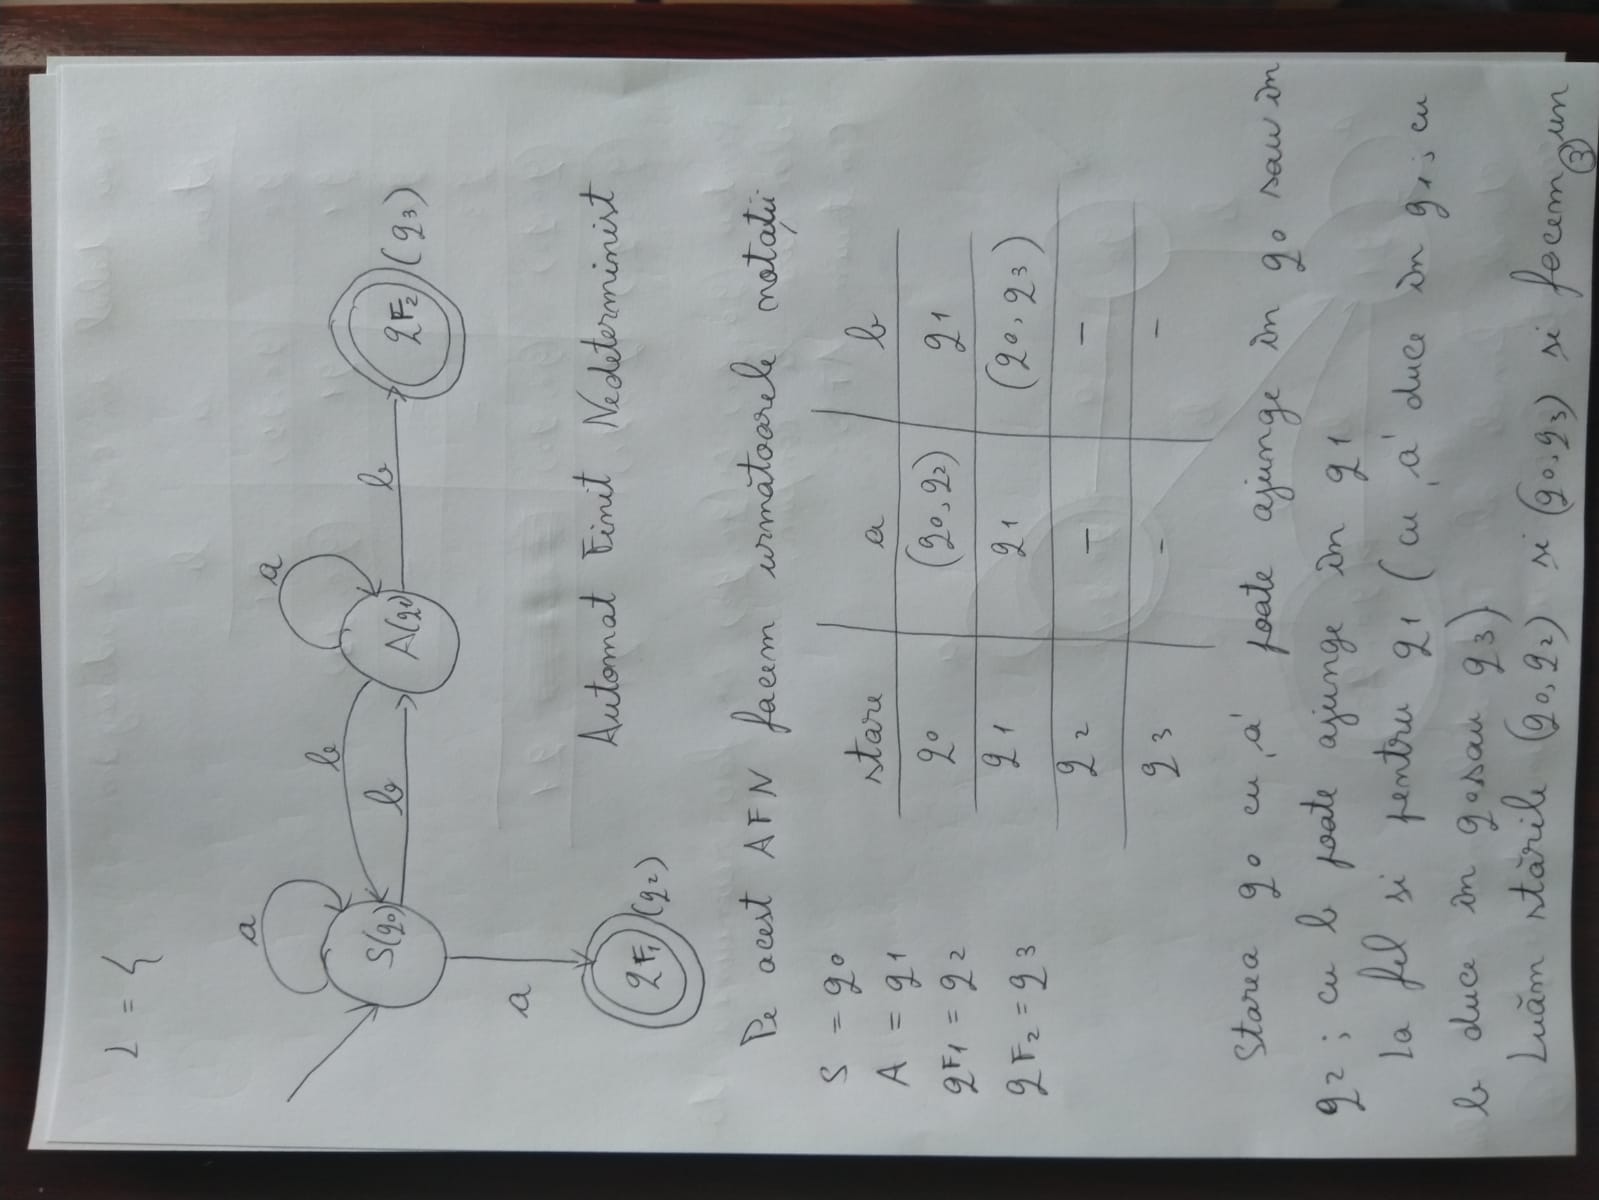 L = {
a
a
S(q0)
b
b
A(q1)
b
qF2 (q3)
a
qF1 (q2)
Automat Finit Nedeterminist
Pe acest AFN facem următoarele notații
S = q0
A = q1
qF1 = q2
qF2 = q3
stare a b
q0 (q0, q2) q1
q1 q1 (q0, q3)
q2 – –
q3 – –
Starea q0 cu „a" poate ajunge în q0 sau în
q2 ; cu b poate ajunge în q1
La fel si pentru q1 ( cu „a" duce în q1 ; cu
b duce în q0 sau q3)
Luăm stările (q0, q2) si (q0, q3) si facem un
3